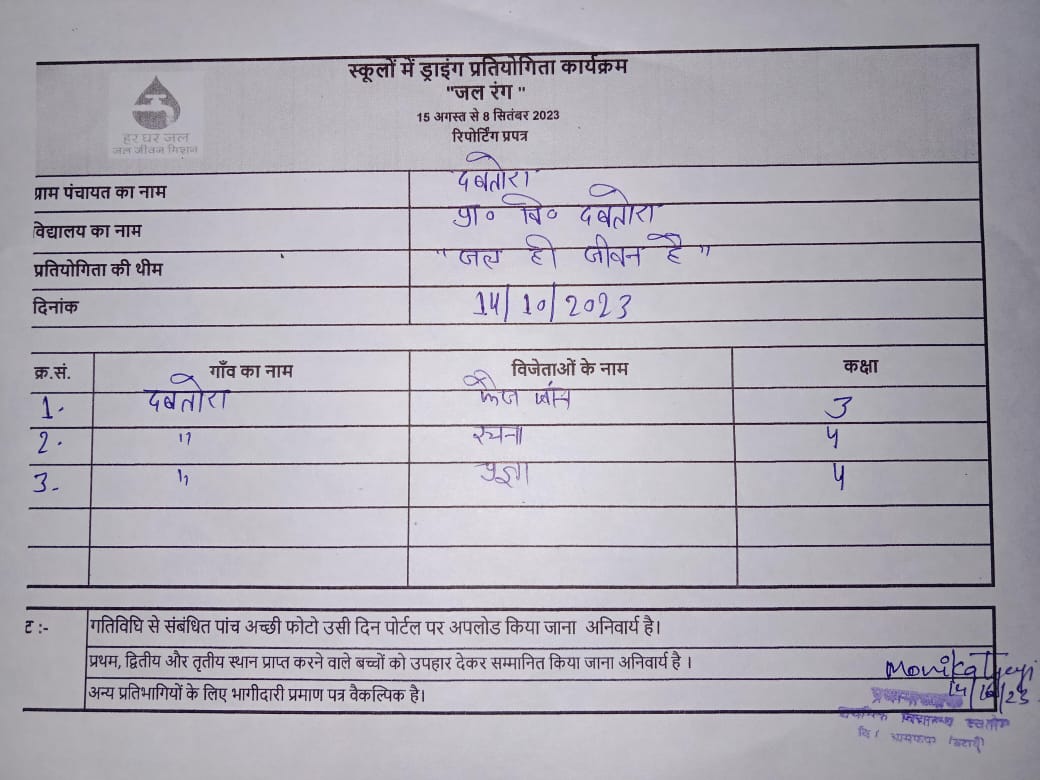 स्कूलों में ड्राइंग प्रतियोगिता कार्यक्रम
"जल रंग "
15 अगस्त से 8 सितंबर 2023
रिपोर्टिंग प्रपत्र
हर घर जल
जल जीवन मिशन
ग्राम पंचायत का नाम दबतोरा
विद्यालय का नाम प्रा० वि० दबतोरा
प्रतियोगिता की थीम "जल ही जीवन है"
दिनांक 14/10/2023
क्र.सं. गाँव का नाम विजेताओं के नाम कक्षा
1. दबतोरा फैज 3
2. " रचना 4
3. " 4
ट :- गतिविधि से संबंधित पांच अच्छी फोटो उसी दिन पोर्टल पर अपलोड किया जाना अनिवार्य है।
प्रथम, द्वितीय और तृतीय स्थान प्राप्त करने वाले बच्चों को उपहार देकर सम्मानित किया जाना अनिवार्य है ।
अन्य प्रतिभागियों के लिए भागीदारी प्रमाण पत्र वैकल्पिक है।
Monika Tyagi
14/10/23